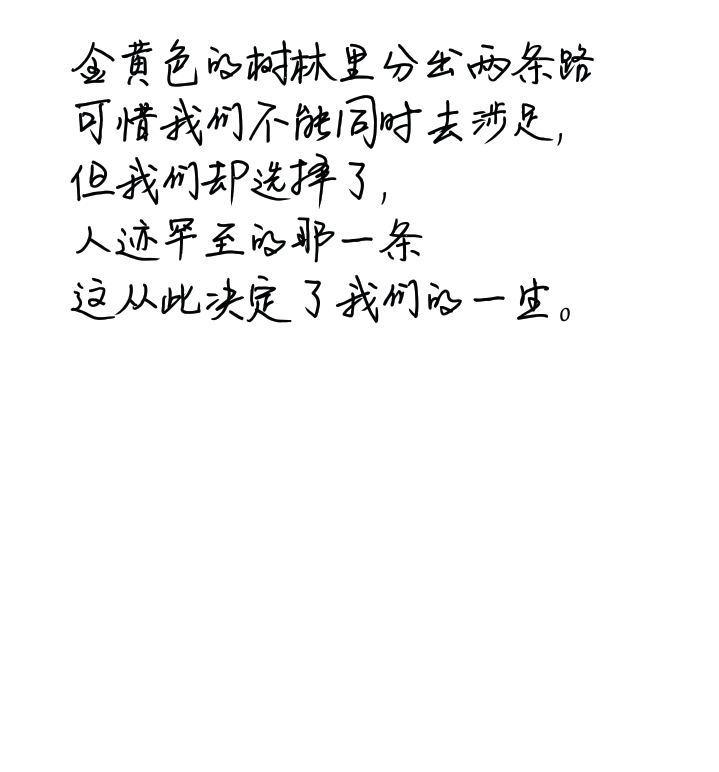 金黄色的树林里分出两条路
可惜我们不能同时去涉足,
但我们却选择了,
人迹罕至的那一条
这从此决定了我们的一生。